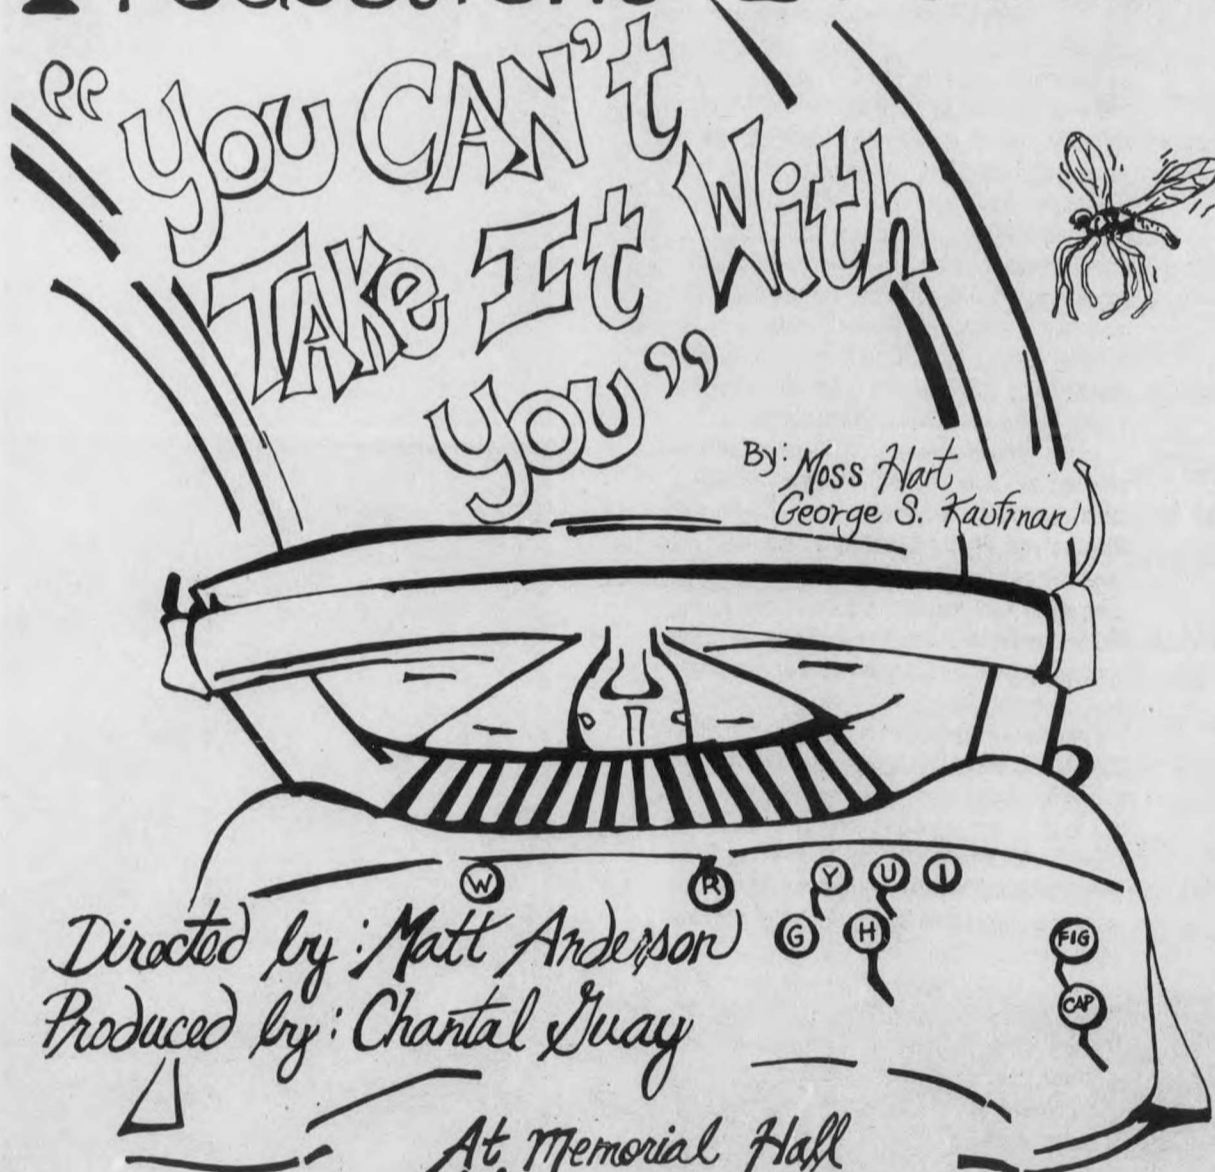 "YOU CAN't
TAKe It With
YOU"
By: Moss Hart
George S. Kaufman
W R Y U I
G H
FIG
CAP
Directed by: Matt Anderson
Produced by: Chantal Guay
At Memorial Hall